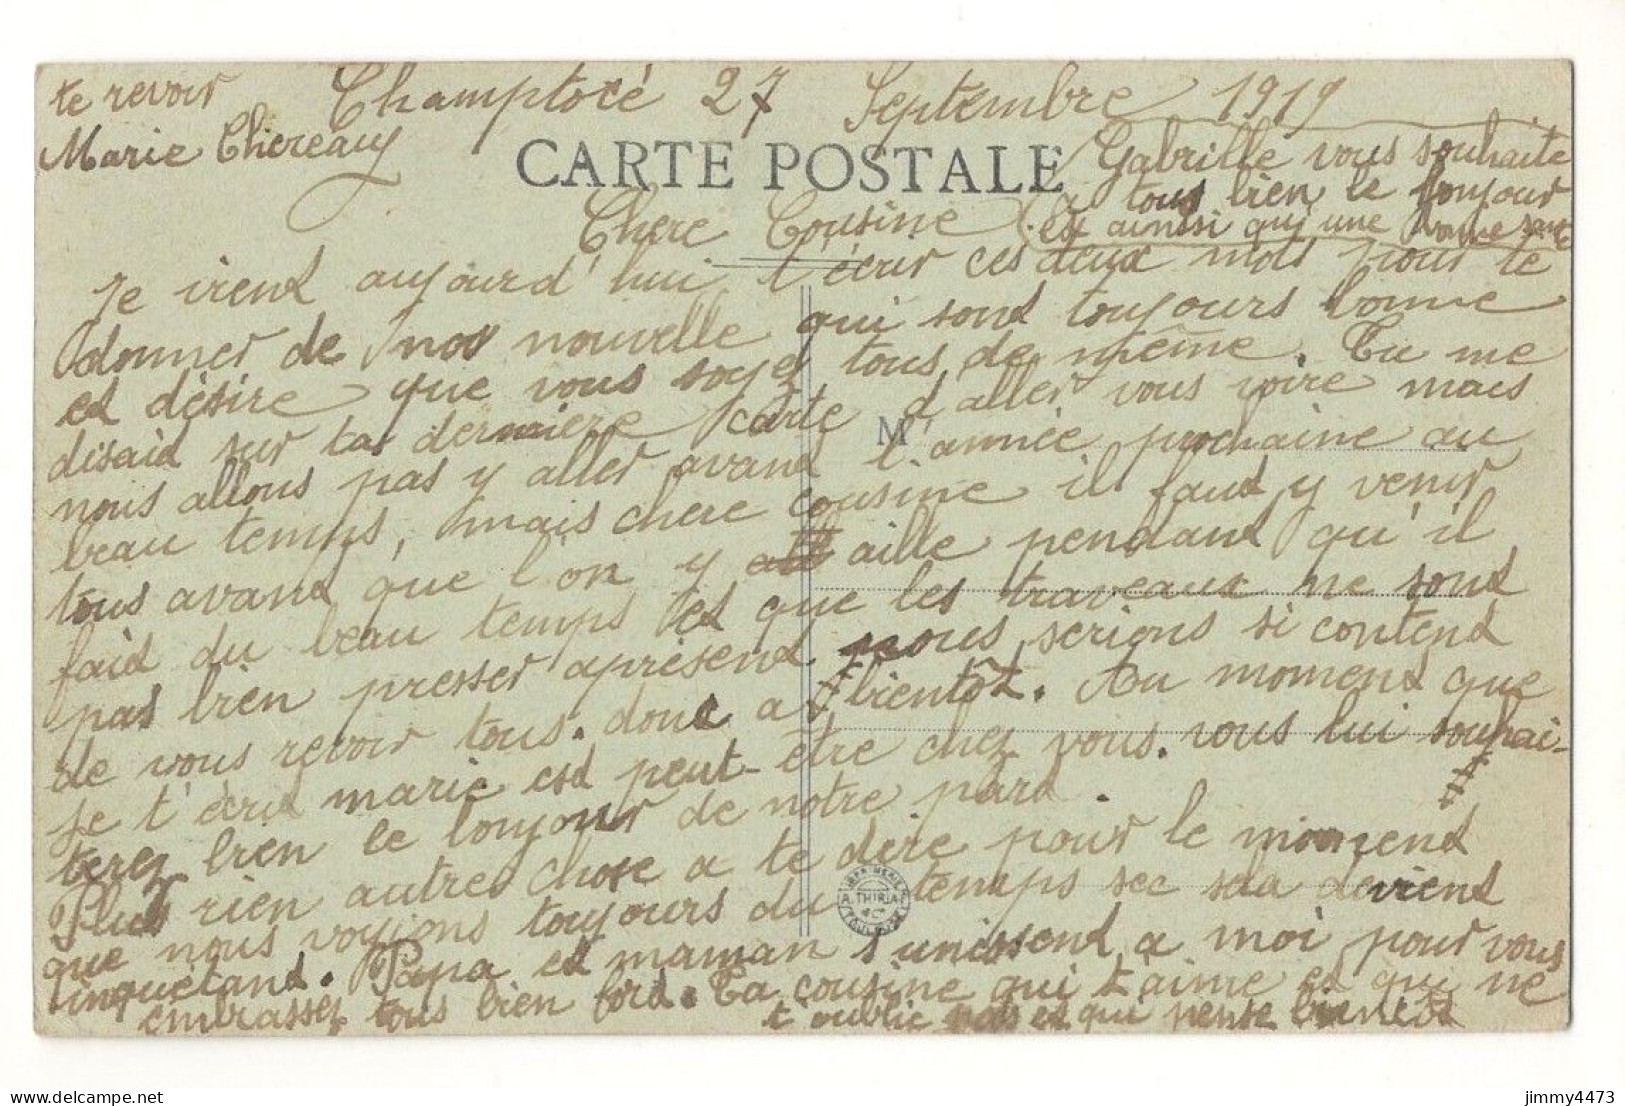 Champtocé 27 Septembre 1919
CARTE POSTALE
Gabrille vous souhaite
a tous bien le bonjour
et ainsi qu'une bonne santé
Chere Cousine
Je vient aujourd'hui t'écrir ces deux mot pour te
donner de nos nouvelle qui sont toujours bonne
et désire que vous soyez tous de même. Tu me
disaid sur ta derniere carte d'aller vous voire mais
nous allons pas y aller avand l'année prochaine au
beau temps, mais chere cousine il faud y venir
tous avand que l'on y aille pendant qu'il
faid du beau temps et que les traveaux ne sond
pas bien presser aprésend nous serions si contend
de vous revoir tous. donc a bientôt. Au momend que
je t'écrid marie est peut-être chez vous. vous lui souhai-
terez bien le bonjour de notre pard.
Plus rien autre chose a te dire pour le momend
que nous voyions toujours du temps sec sela deviend
inquiétand. Papa et maman s'unissend a moi pour vous
embrasser tous bien ford. Ta cousine qui t'aime et qui ne
t'oublie pas et qui pense bientôt
te revoir
Marie Thereauy
M
IMPRIMERIE
A. THIRIAT
& Cie
TOULOUSE
jimmy4473